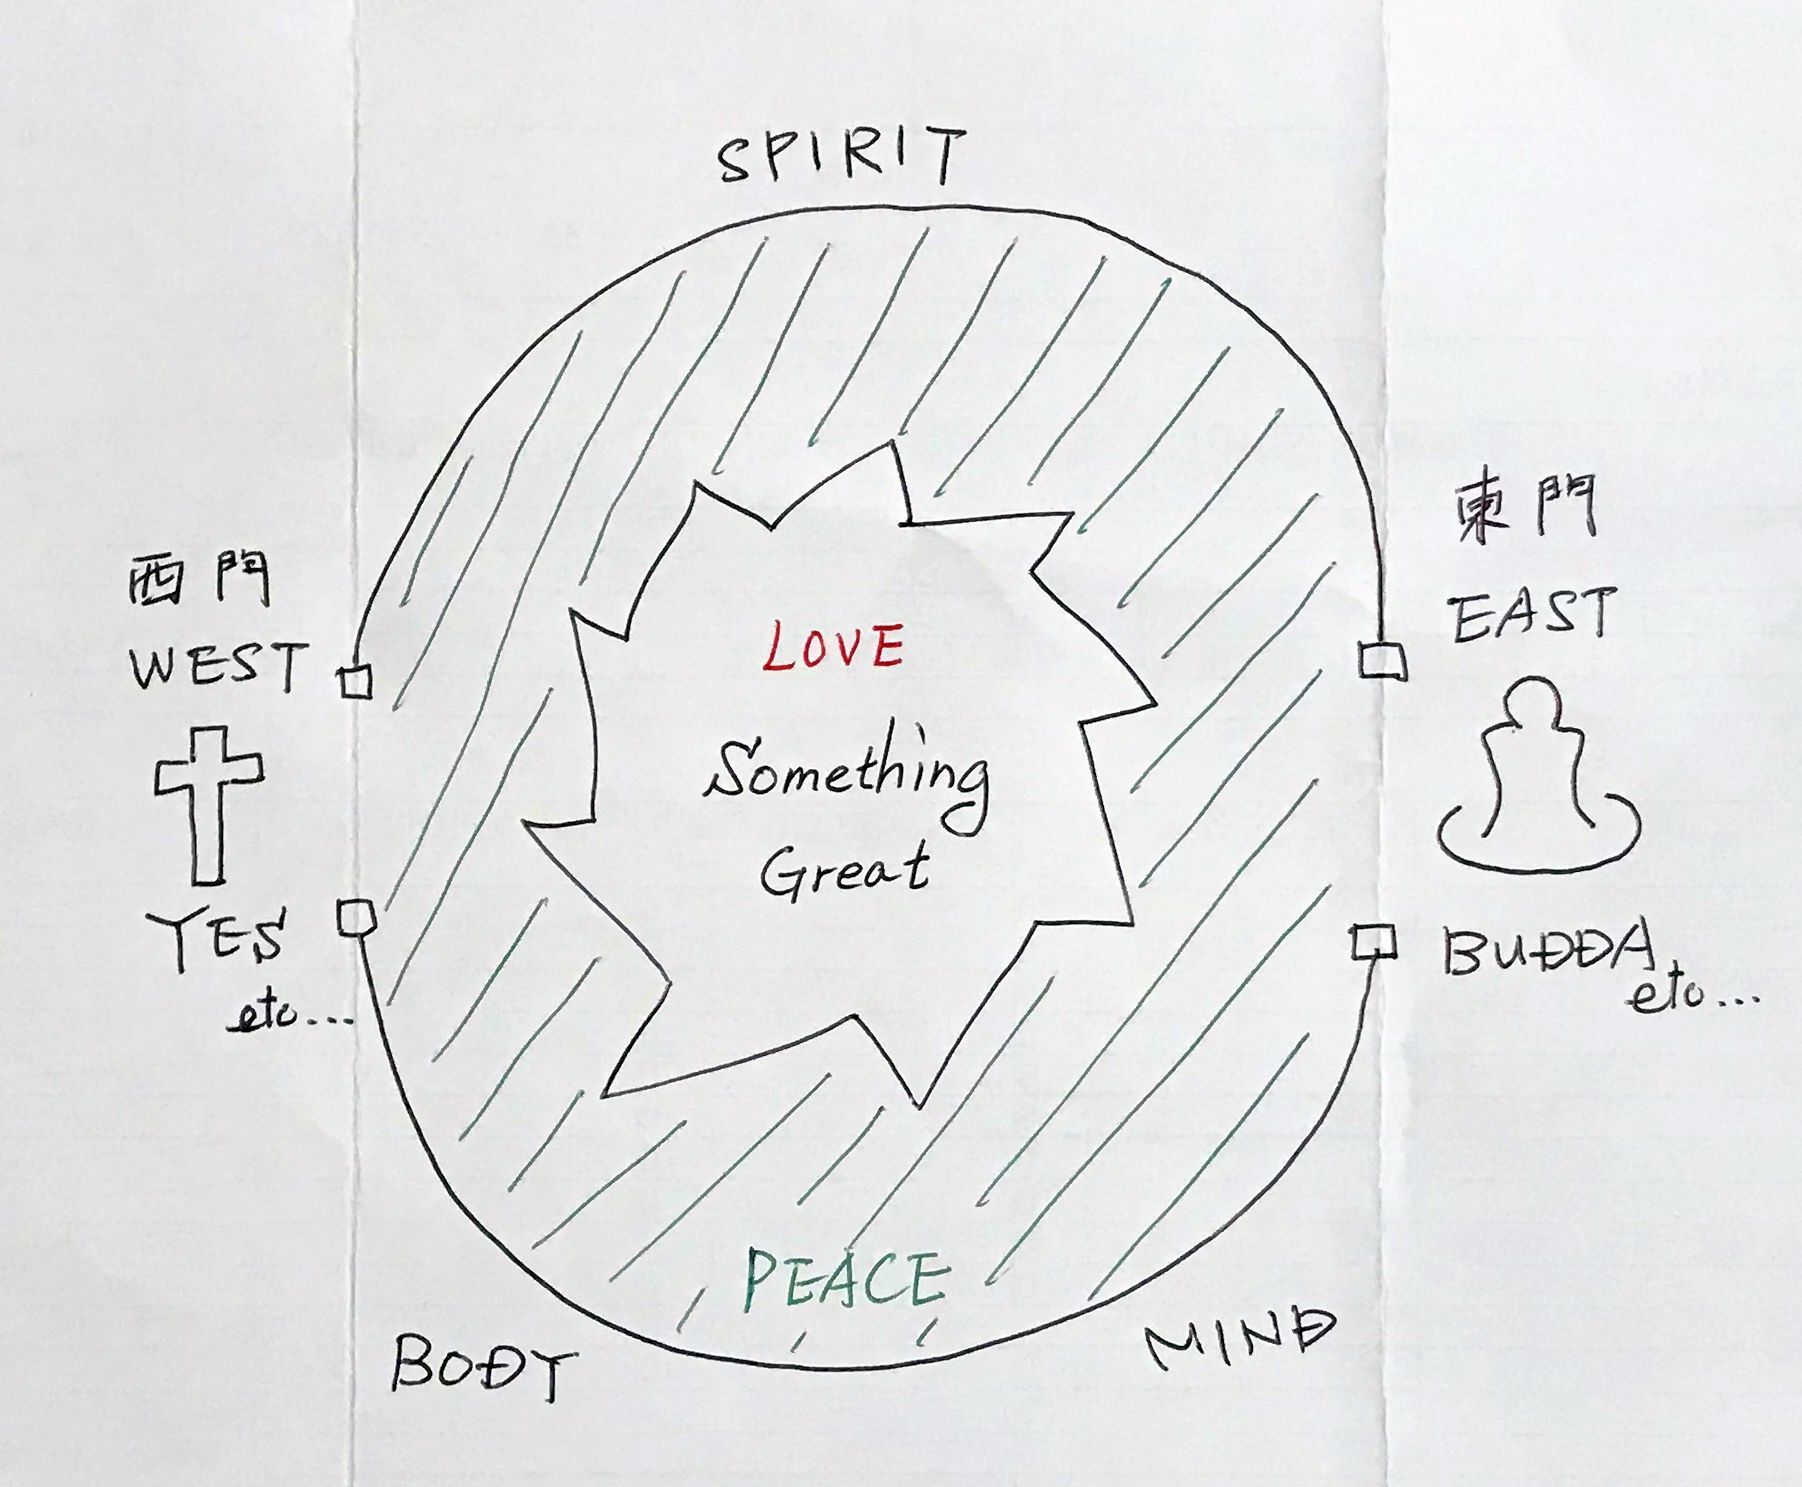 SPIRIT
西門
WEST
YES
etc...
東門
EAST
BUDDA
etc...
LOVE
Something
Great
PEACE
BODY
MIND